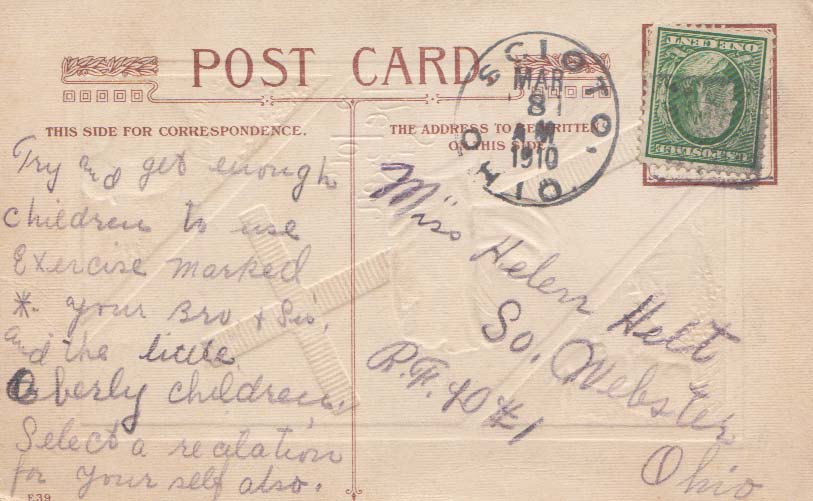 POST CARD
THIS SIDE FOR CORRESPONDENCE.
Try and get enough
children to use
Exercise marked
* your Bro + Sis,
and the little
Oberly children,
Select a recitation
for your self also.
F.39
THE ADDRESS TO BE WRITTEN
ON THIS SIDE
SCIOTO,
MAR
8
A M
1910
OHIO.
U.S. POSTAGE
ONE CENT
Miss Helen Helt
So. Webster
R.F.D #1
Ohio